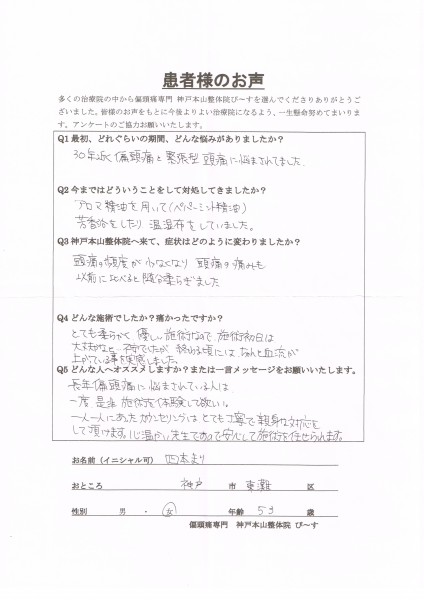 患者様のお声
多くの治療院の中から偏頭痛専門 神戸本山整体院ぴ〜すを選んでくださりありがとうご
ざいました。皆様のお声をもとに今後よりよい治療院になるよう、一生懸命努めてまいりま
す。アンケートのご協力お願いいたします。
Q1 最初、どれぐらいの期間、どんな悩みがありましたか？
30年近く偏頭痛と緊張型頭痛に悩まされてました。
Q2 今まではどういうことをして対処してきましたか？
アロマ精油を用いて(ペパーミント精油)
芳香浴をしたり 温湿布をしていました。
Q3 神戸本山整体院へ来て、症状はどのように変わりましたか？
頭痛の頻度が少なくなり 頭痛の痛みも
以前に比べると随分柔らぎました
Q4 どんな施術でしたか？痛かったですか？
とても柔らかく 優しい施術なので 施術初日は
大丈夫かな…と 思ってしたが 終わる頃には なんと血流が
上がている事を実感しました。
Q5 どんな人へオススメしますか？または一言メッセージをお願いいたします。
長年偏頭痛に悩まされている人は
一度是非施術を体験して欲しい。
一人一人にあったカウンセリングは とても丁寧で親身な対応を
して頂けます。心温かい先生なので安心して施術を任せられます。
お名前（イニシャル可） 四本まり
おところ 神戸 市 東灘 区
性別 男 ・ 女 年齢 53 歳
偏頭痛専門 神戸本山整体院 ぴ〜す